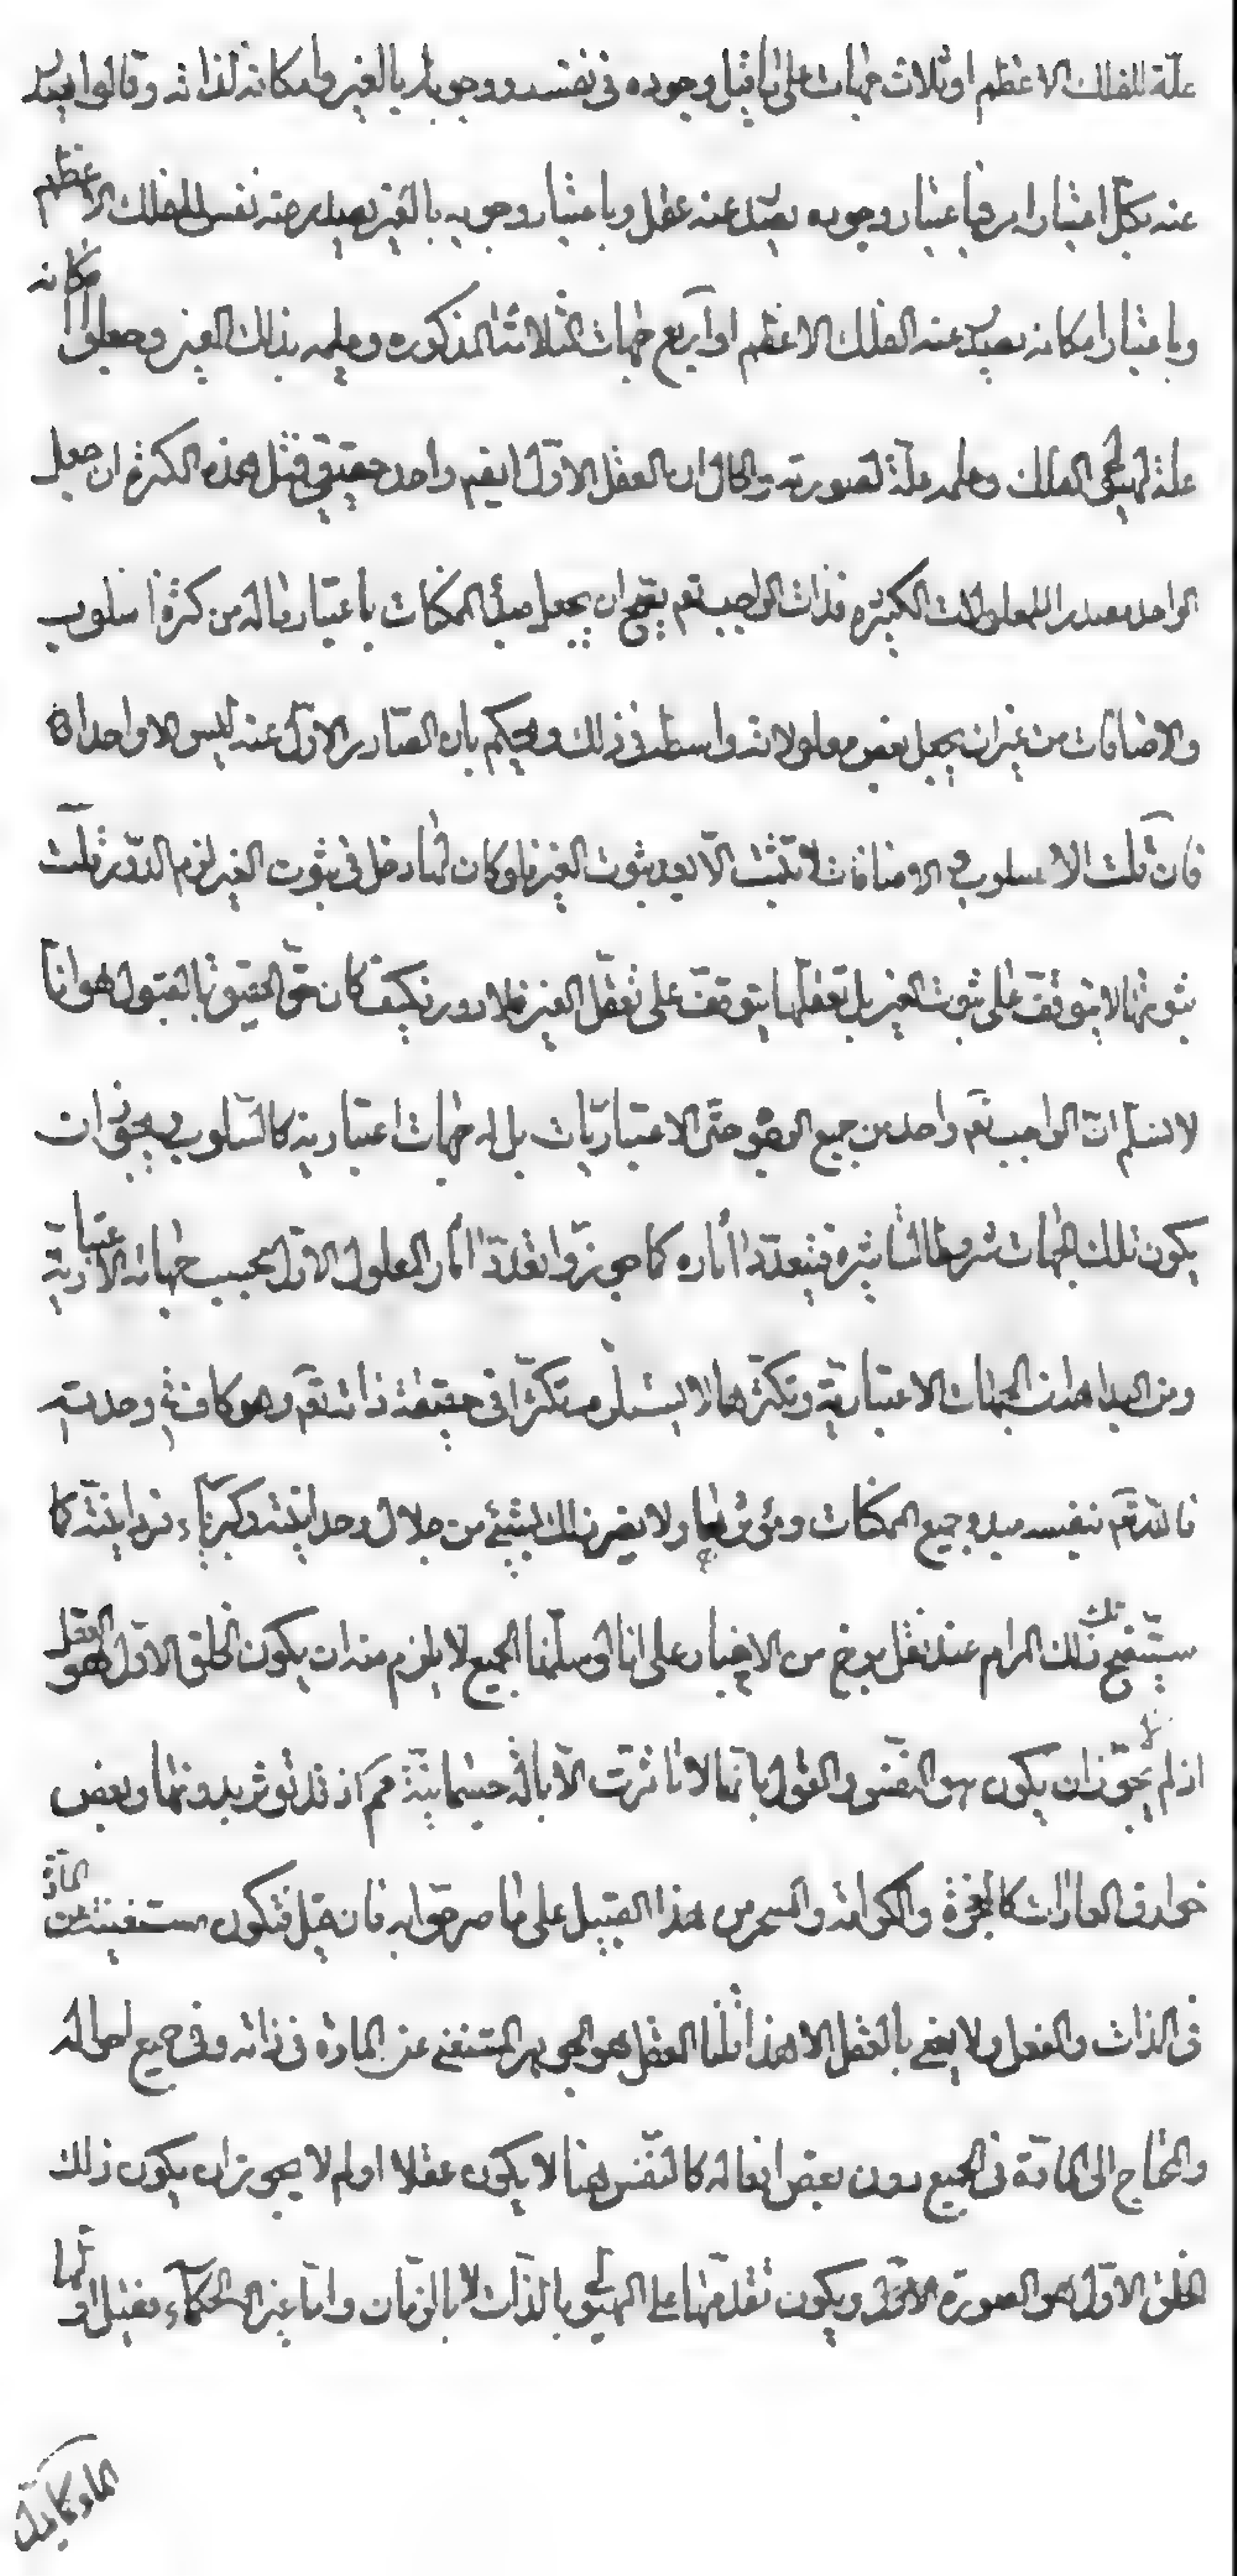 علّة للفلك الاعظم او ثلاث جهات على ما قيل وجوده فى نفسه ووجوبه بالغير وامكانه لذاته وقالوا يصدر
عنه بكلّ اعتبار امر فباعتبار وجوده يصدر عنه عقل وباعتبار وجوبه بالغير يصدر عنه نفس للفلك الاعظم
وباعتبار امكانه يصدر عنه الفلك الاعظم او اربع جهات الثلاثة المذكورة وعلمه بذلك الغير وجعلوا امكانه
علة لهيولى الفلك وعلمه علّة لصورته والحال ان العقل الاوّل ايضم واحد حقيقى فمثل هذه الكثرة ان جعل
الواحد مصدرا للمعلولات الكثيرة فذات الواجب تعم يصح ان يجعل مبدأ الممكنات باعتبار ماله من كثرة اسلوب
والاضافات من غير ان يجعل بعض معلولاته واسطة فى ذلك ويحكم بان الصادر الاوّل عنه ليس الا واحدا
فان قلت الاسلوب والاضافات لا تثبت الّا بعد ثبوت الغير فلو كان لها دخل فى ثبوت الغير لزم الدّور قلت
ثبوتها لا يتوقّف على ثبوت الغير بل تعقلها يتوقف على تعقّل الغير فلا دور فكيف كان حقّ الحقيق بالقبول هو انا
لا نسلّم انّ الواجب تعم واحد من جميع الوجوه حتّى الاعتباريّات بل له جهات اعتبارية كالسّلوب فيجوز ان
يكون تلك الجهات شروطا لتاثيره فيتعدّد اثاره كما جوزوا تعدّد اثار المعلول الاوّل بحسب جهاته الاعتبارية
ومن البداهة ان الجهات الاعتبارية وتكثرها لا يستلزم تكثرا فى حقيقة ذاته تعم وهو كاف فى وحدته
فالله تعم بنفسه مبدء جميع الممكنات ومؤثرها ولا يضر ذلك بشىء من جلال وحدانيته وكبرياء فردانيته كما
ستتضح تلك المرام عند نقل برخ من الاخبار على انا لو سلّمنا الجميع لا يلزم منه ان يكون الخلق الاوّل هو العقل
اذ لم لا يجوز ان يكون هو النفس والقول بانها لا تاثرت الّا بالة جسمانيّة مم اذ قد تؤثر بدونها وبعض
خوارق العادات كالمعجزة والكرامة والسحر من هذا القبيل على ما صرحوا به فان قيل فتكون مستغنية عن المادّة
فى الذات والفعل ولا يعنى بالعقل الا هذا قلنا العقل هو الجوهر المستغنى عن المادة فى ذاته وفى جميع افعاله
والمحتاج الى المادّة فى الجميع دون بعض افعاله كالنّفس هنا لا يكون عقلا او لم لا يجوز ان يكون ذلك
الخلق الاوّل هو الصورة الاوّل ويكون تقدّمها على الهيولى بالذات لا بالزمان وامّا غير الحكماء فقيل اولها
الماء كما يدل